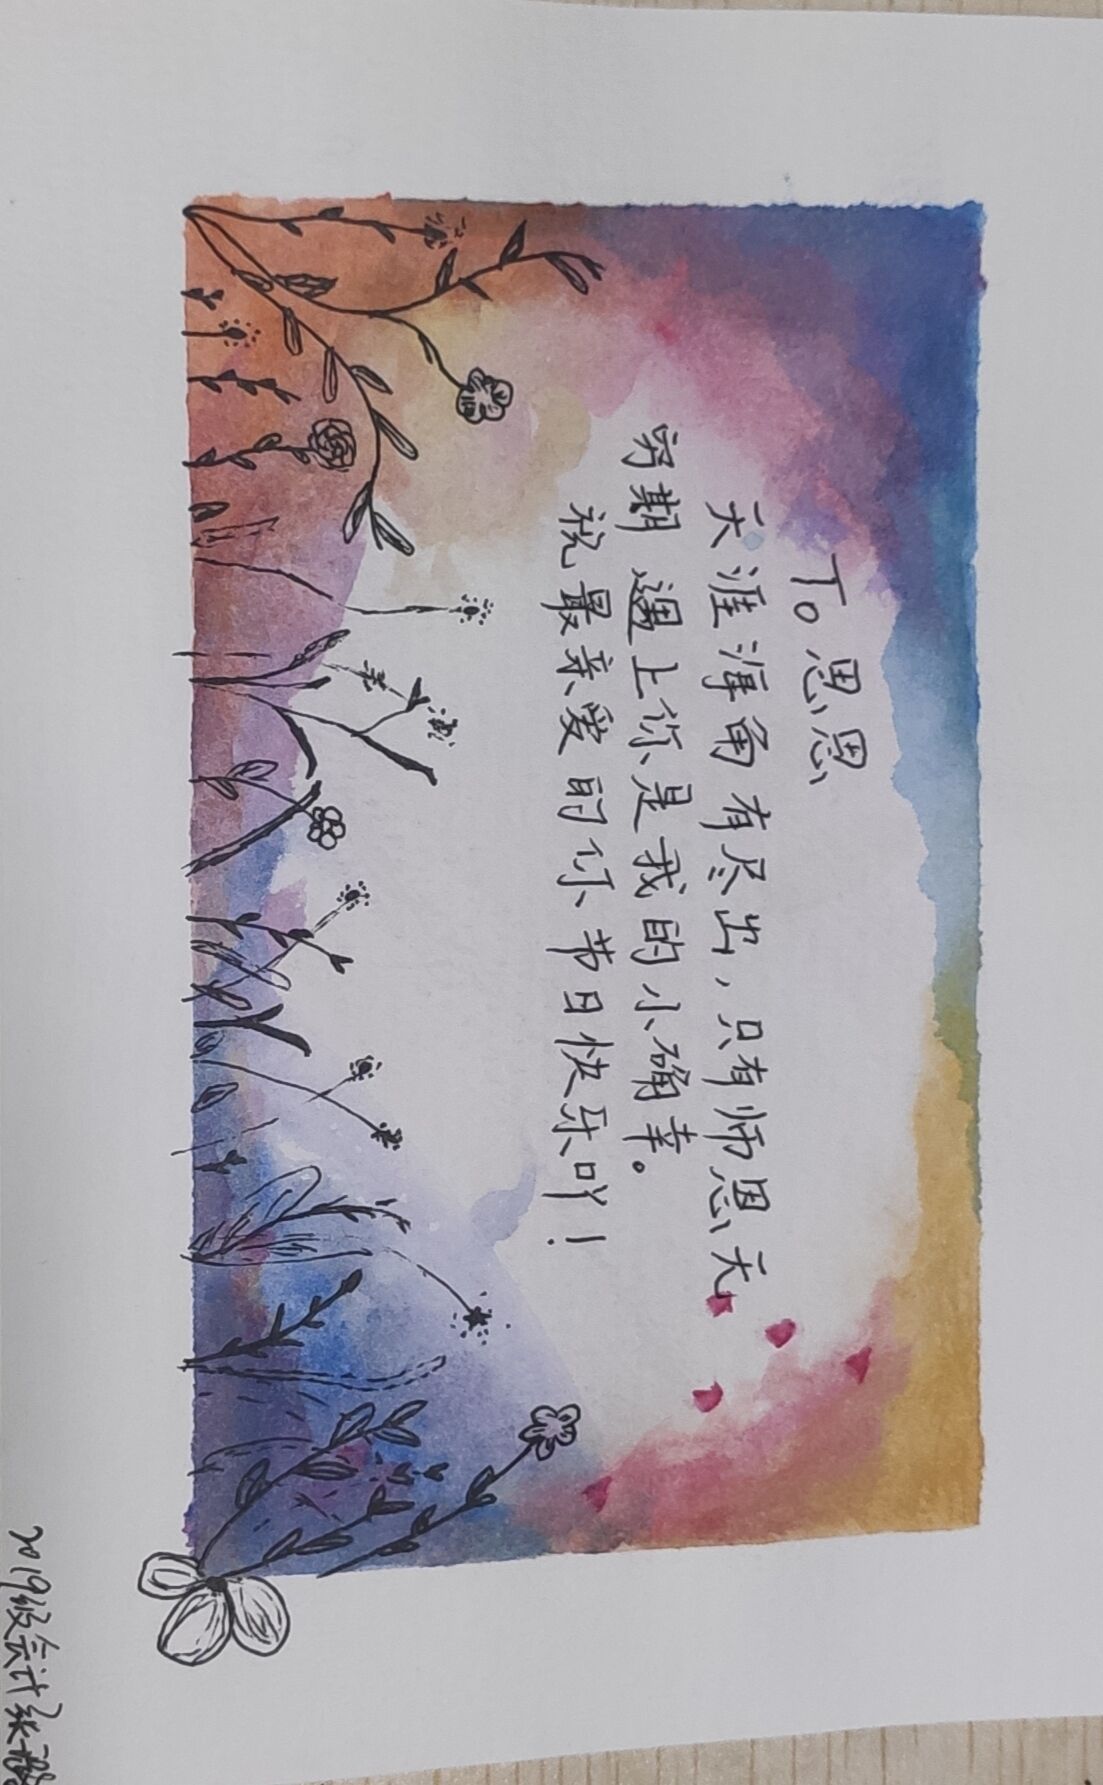 To 思思
天涯海角有尽出,只有师恩无
穷期 遇上你是我的小确幸。
祝最亲爱的你节日快乐吖!
2019级会计张